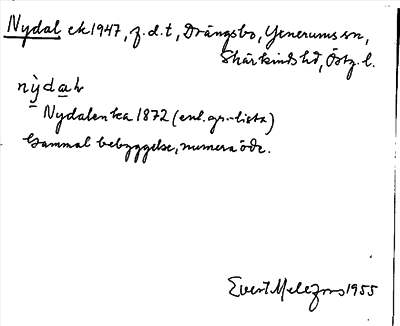 Nydal ek 1947, f.d.t, Drängsbo, Yxnerums sn,
Skärkinds hd, Östg. l.
nỳdaḷ
Nydalen ka 1872 (enl. gr.-lista)
Gammal bebyggelse, numera öde.
Evert Melefors 1955